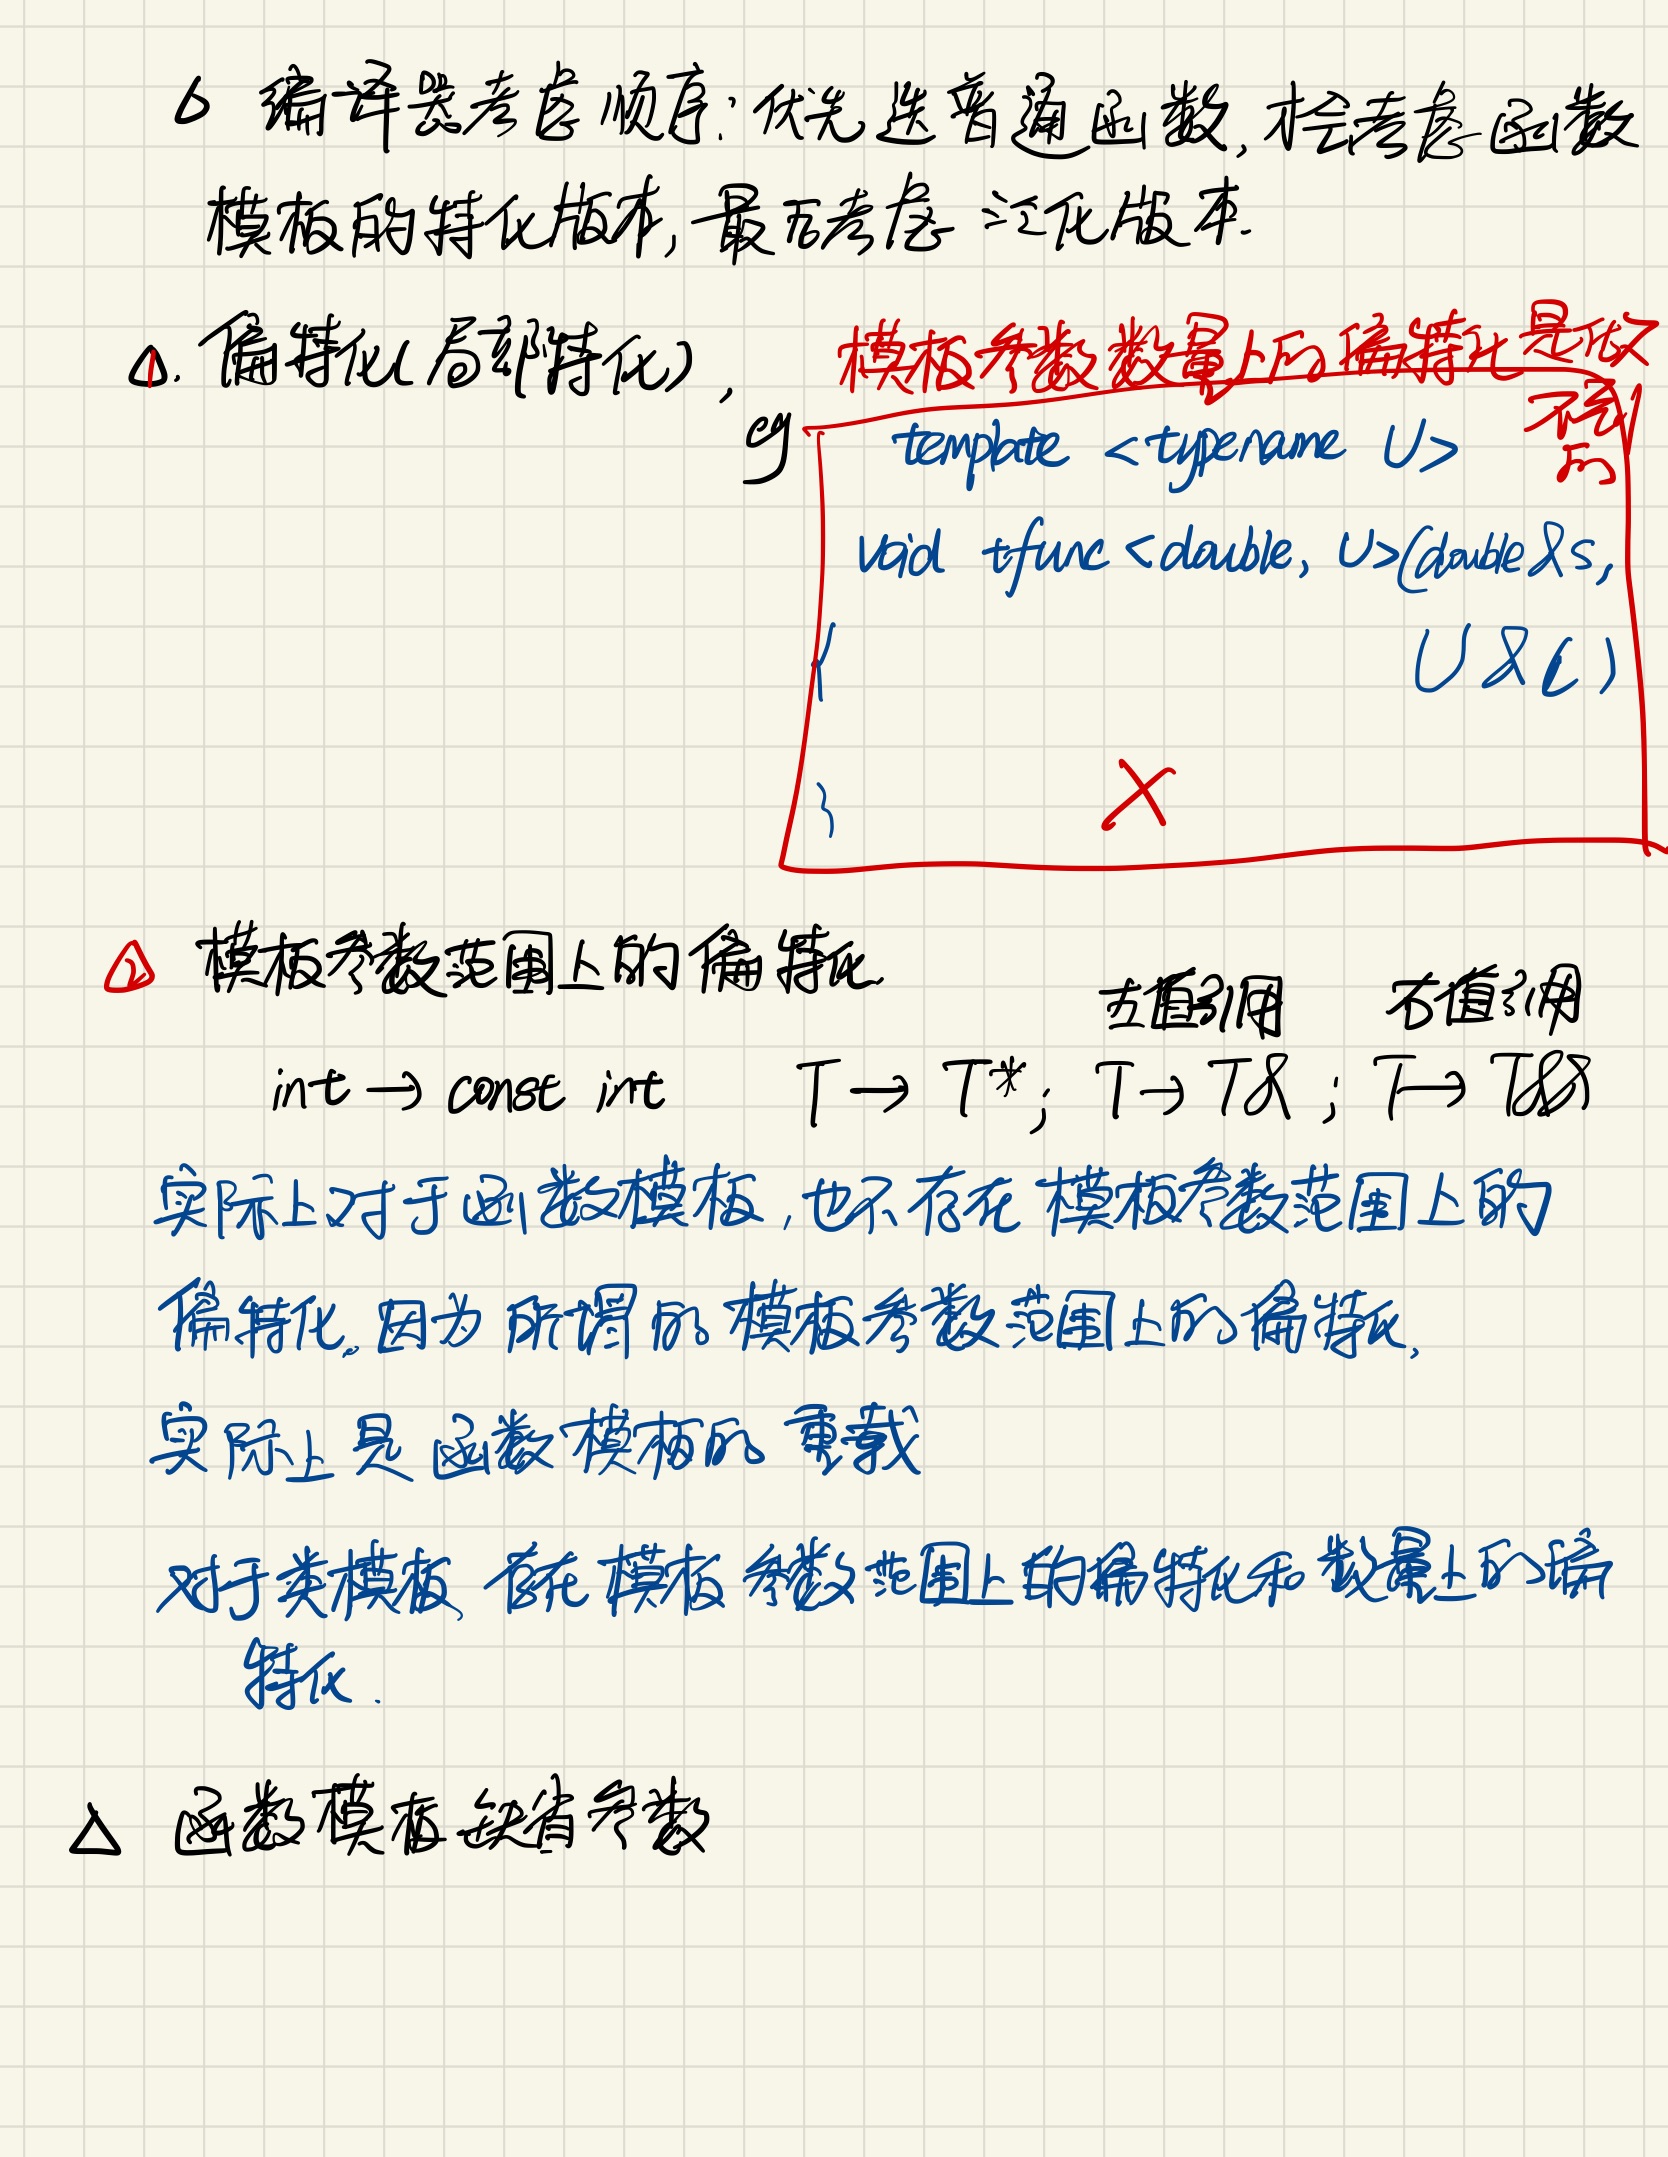 6 编译器考虑顺序:优先选普通函数,才会考虑函数
模板的特化版本,最后考虑泛化版本.
1. 偏特化(局部特化),
模板参数数量上的偏特化是
不
的
eg
template <typename U>
void tfunc<double, U>(double&s,
U&c)
{
}
×
2 模板参数范围上的偏特化
左值引用 右值引用
int → const int T → T*; T → T& ; T → T&&
实际上对于函数模板,也不存在模板参数范围上的
偏特化。因为所谓的模板参数范围上的偏特化,
实际上是函数模板的重载
对于类模板、存在模板参数范围上的偏特化和数量上的偏
特化.
△ 函数模板缺省参数